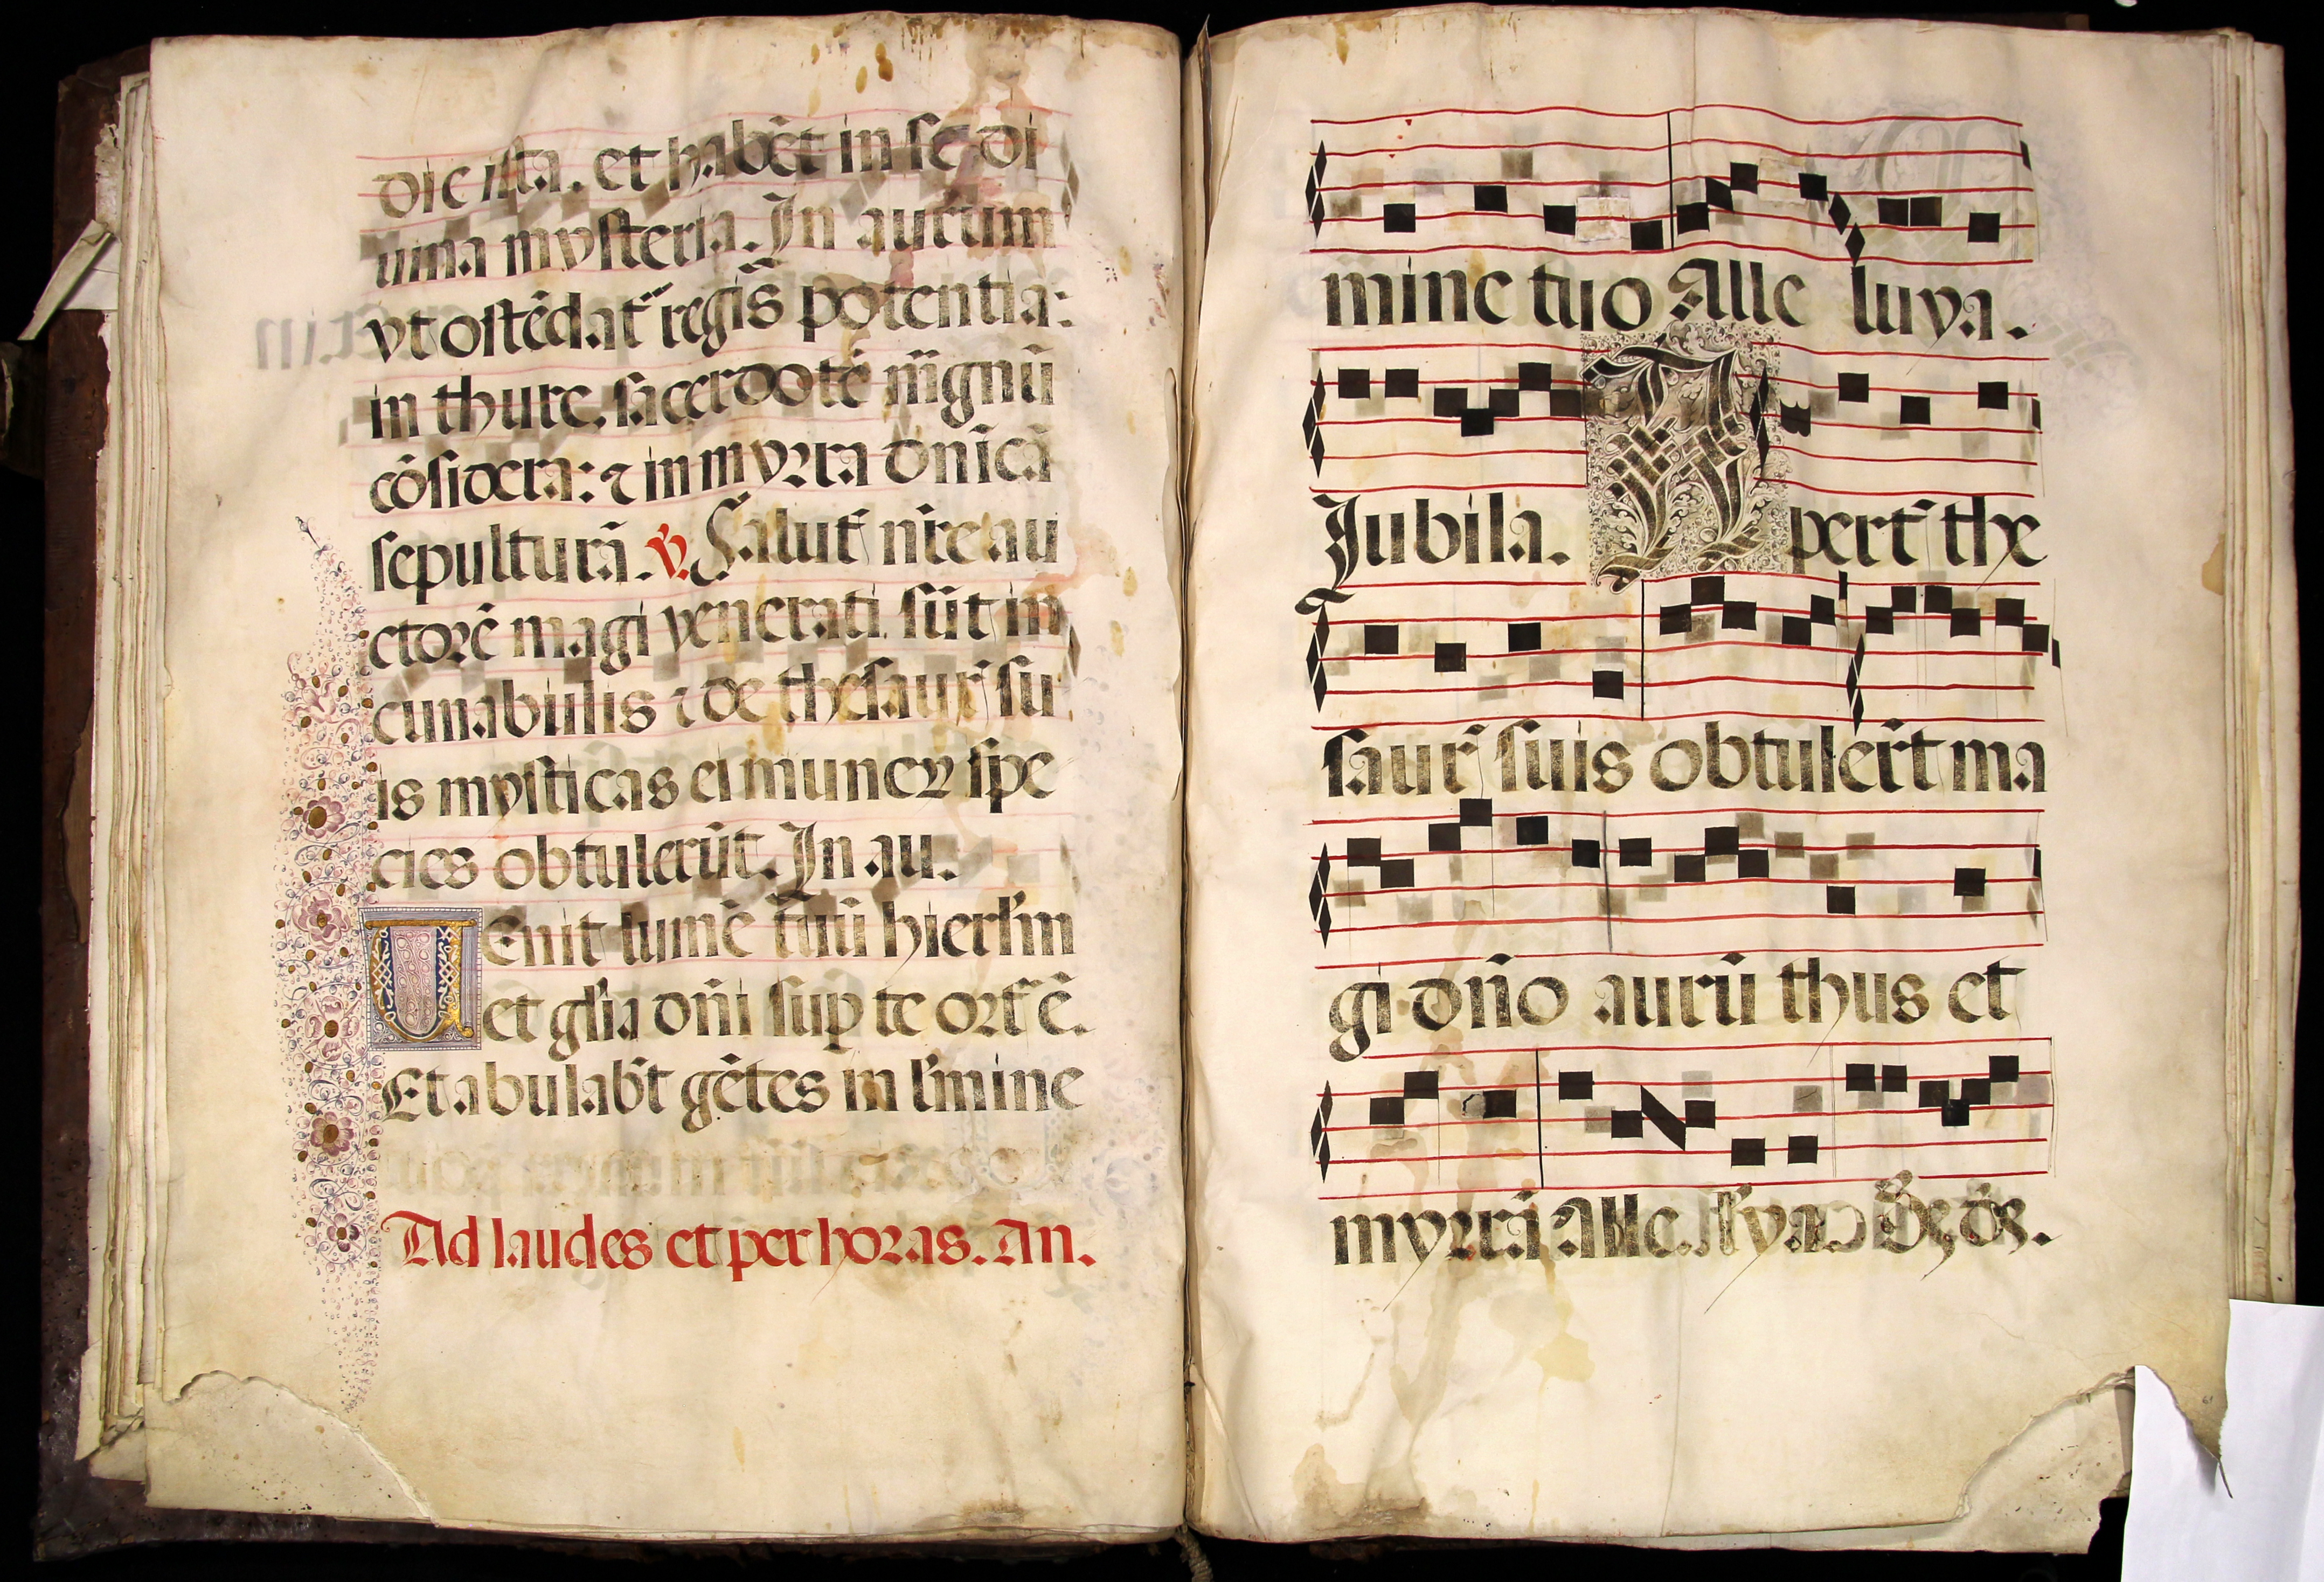 die ista. et habẽt in se di
uina mysteria. In aurum
vt ostẽdat᷑ regis̃ potentia:
in thure. sacerdotẽ m̃gnũ
cõsidera: ⁊ in myrra dnĩcã
sepulturã. ℣. Salut᷑ nr̃e au
ctorẽ magi venerati sũt in
cunabulis ⁊ de thesaur᷑ su
is mysticas ei muneꝝ spe
cies obtulerũt. In au.
UEnit lumẽ tuũ hierl̃m
et gl̃ia dñi sup̃ te ort᷑ ẽ.
Et abulab̃t gẽtes in l̃mine
Ad laudes et per horas. An.
mine tuo Alle luya.
Jubila. Apert᷑ the
saur᷑ suis obtuler̃t ma
gi dño aurũ thus et
myrrã Alle.